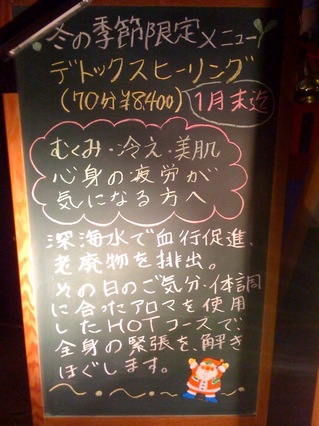 冬の季節限定メニュー
デトックスヒーリング
(70分¥8400)
1月末迄
むくみ・冷え・美肌
心身の疲労が
気になる方へ
深海水で血行促進、
老廃物を排出。
その日のご気分・体調
に合ったアロマを使用
したHOTコースで、
全身の緊張を、解き
ほぐします。